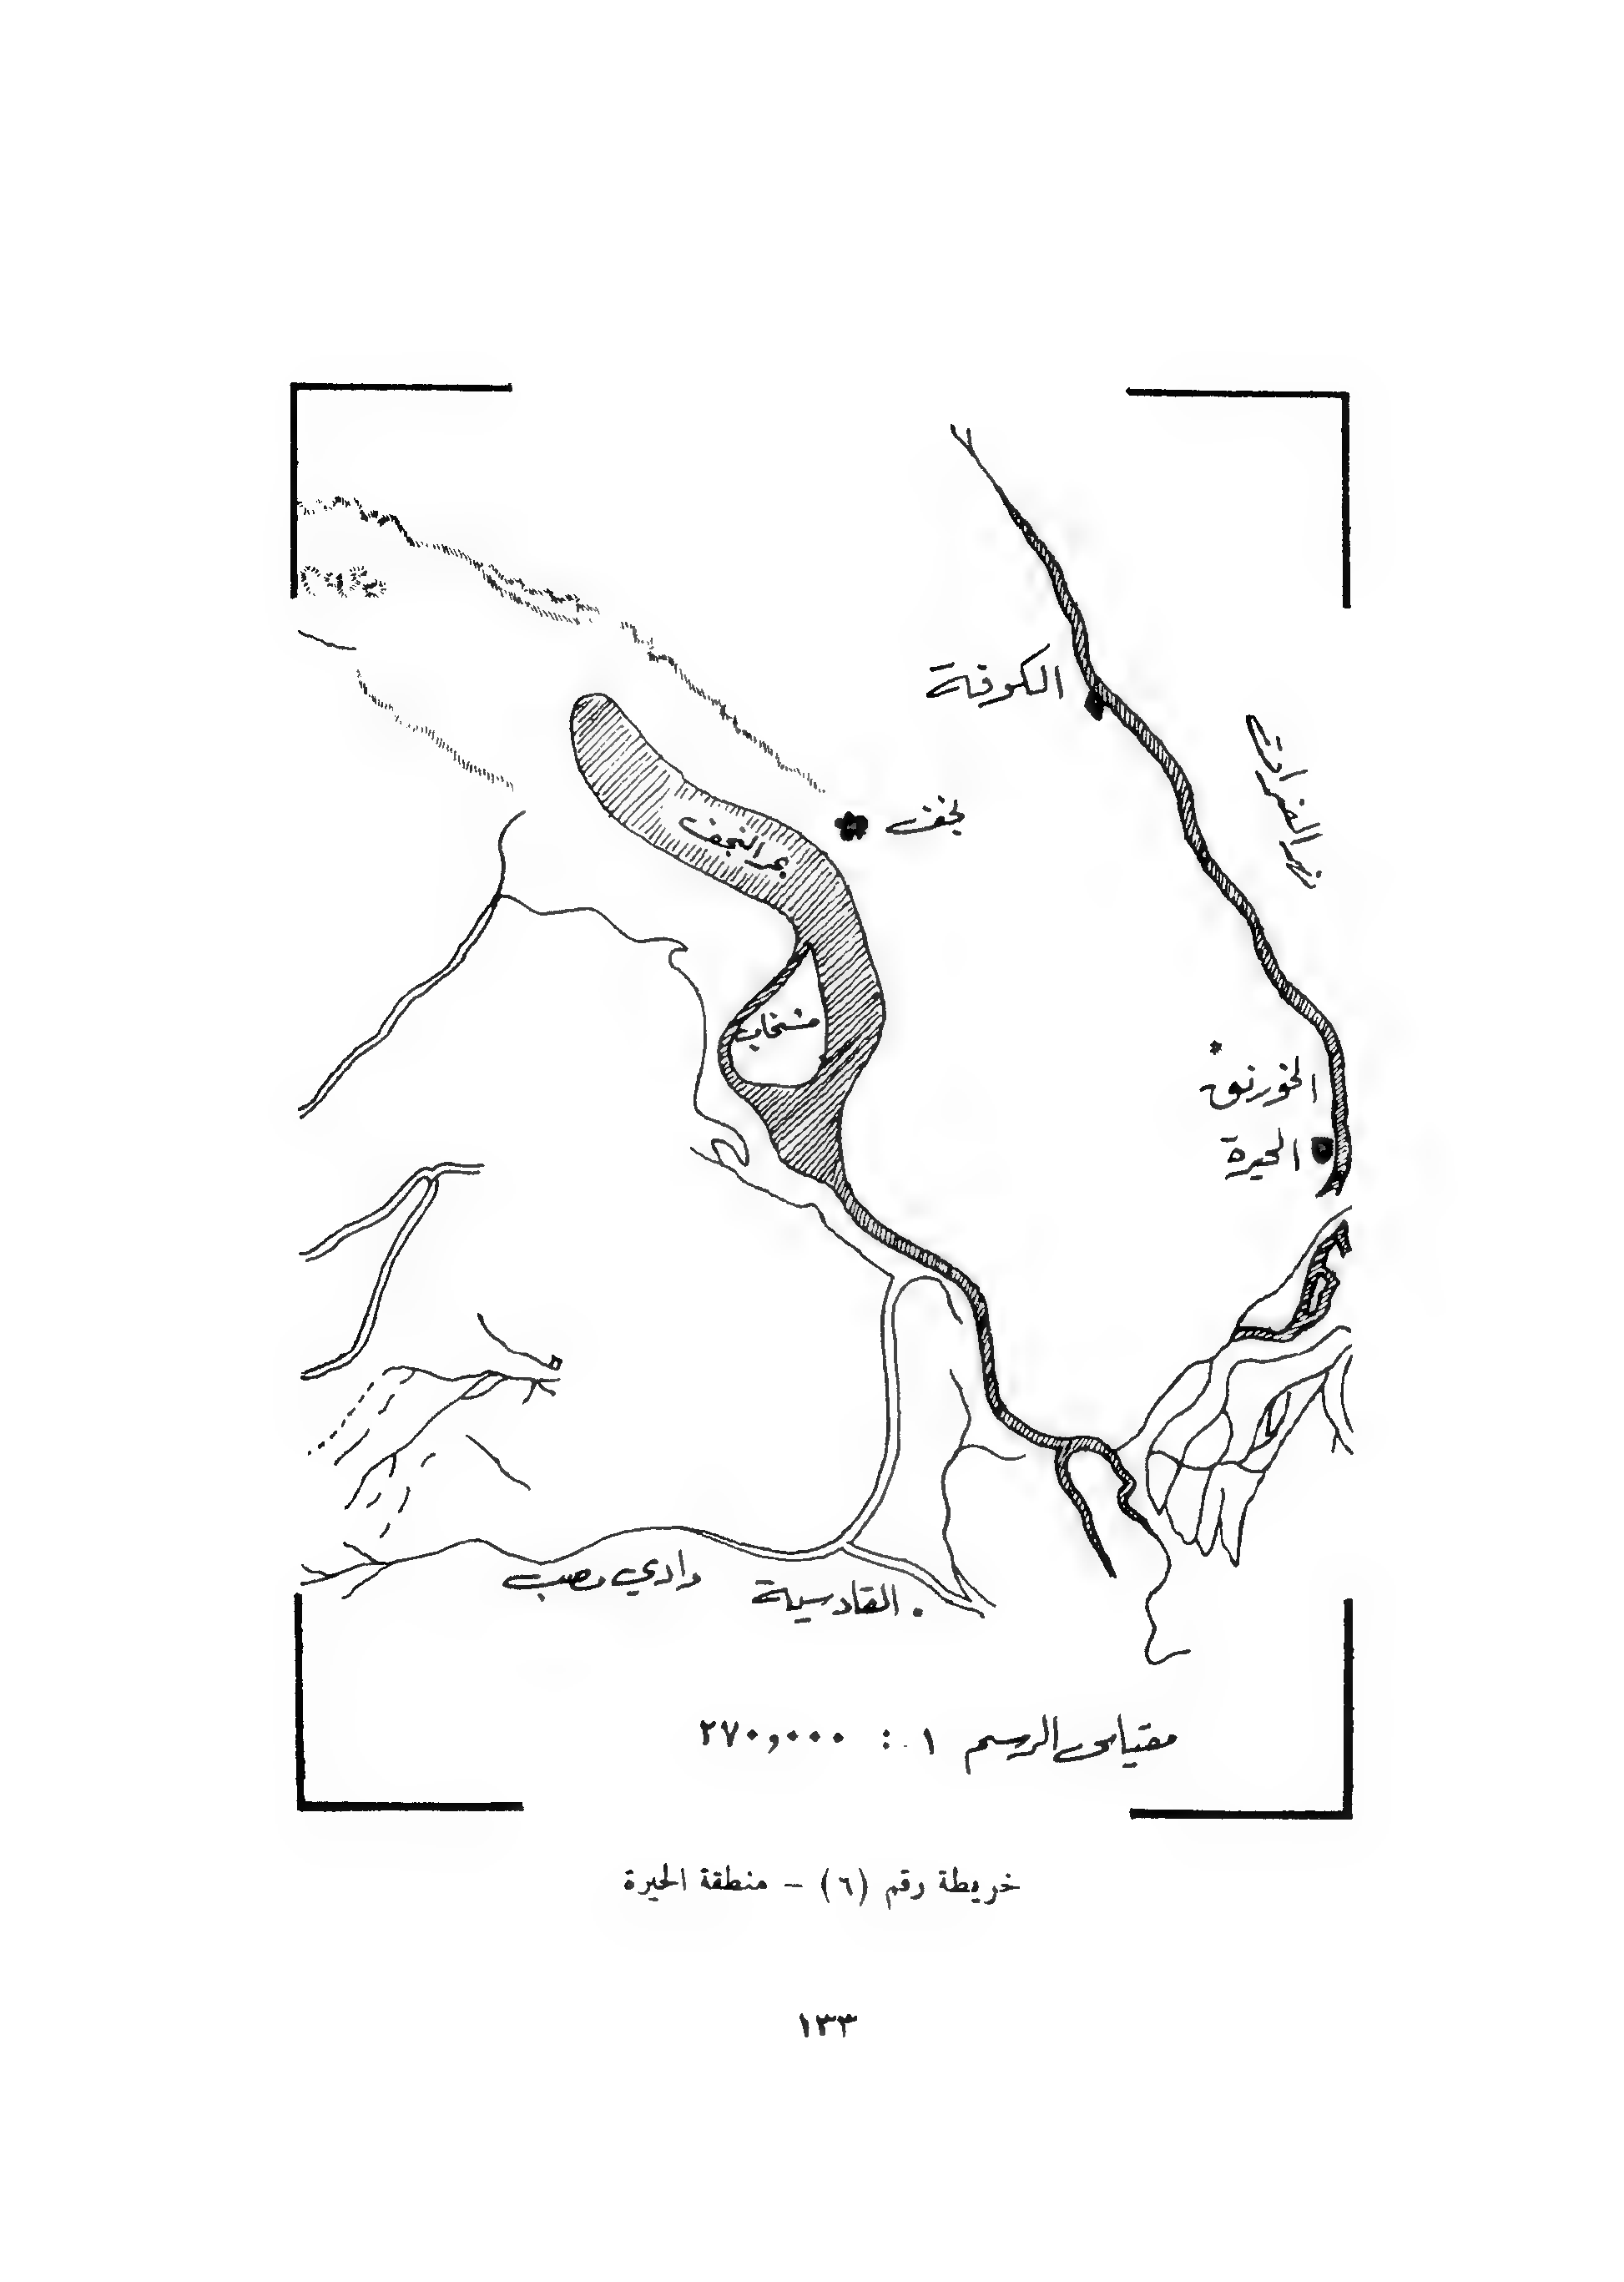 الكوفة
نهر الفرات
نجف
بحر النجف
الخورنق
الحيرة
وادي
القادسية
مقياس الرسم ١ : ٢٧٠,٠٠٠
خريطة رقم (٦) - منطقة الحيرة
١٣٣